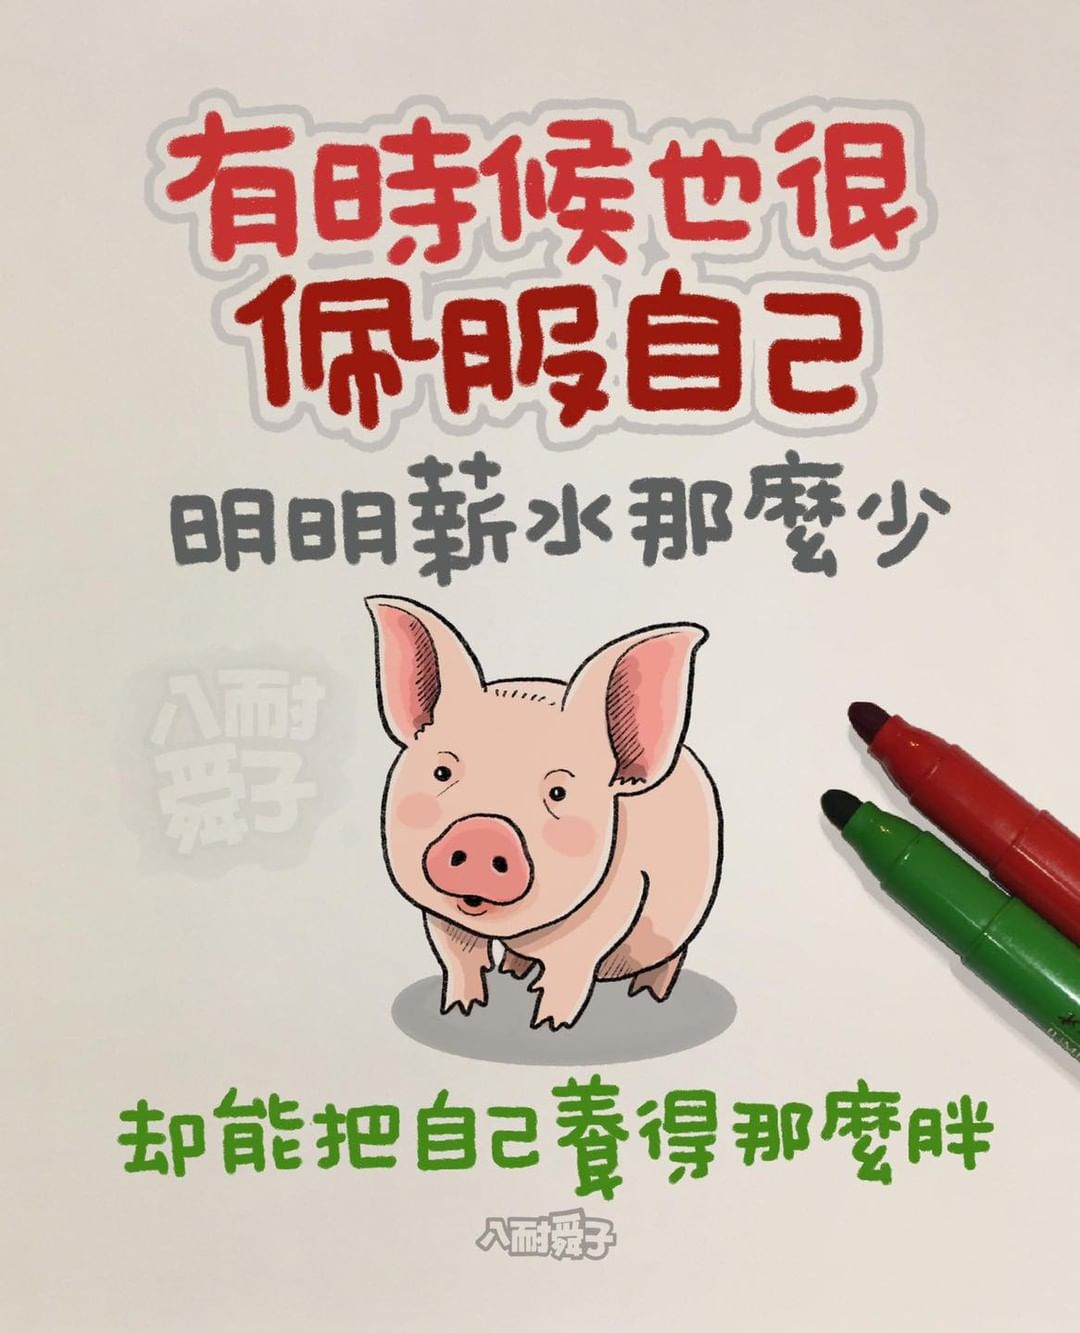 有時候也很
佩服自己
明明薪水那麼少
八耐
舜子
却能把自己養得那麼胖
八耐舜子